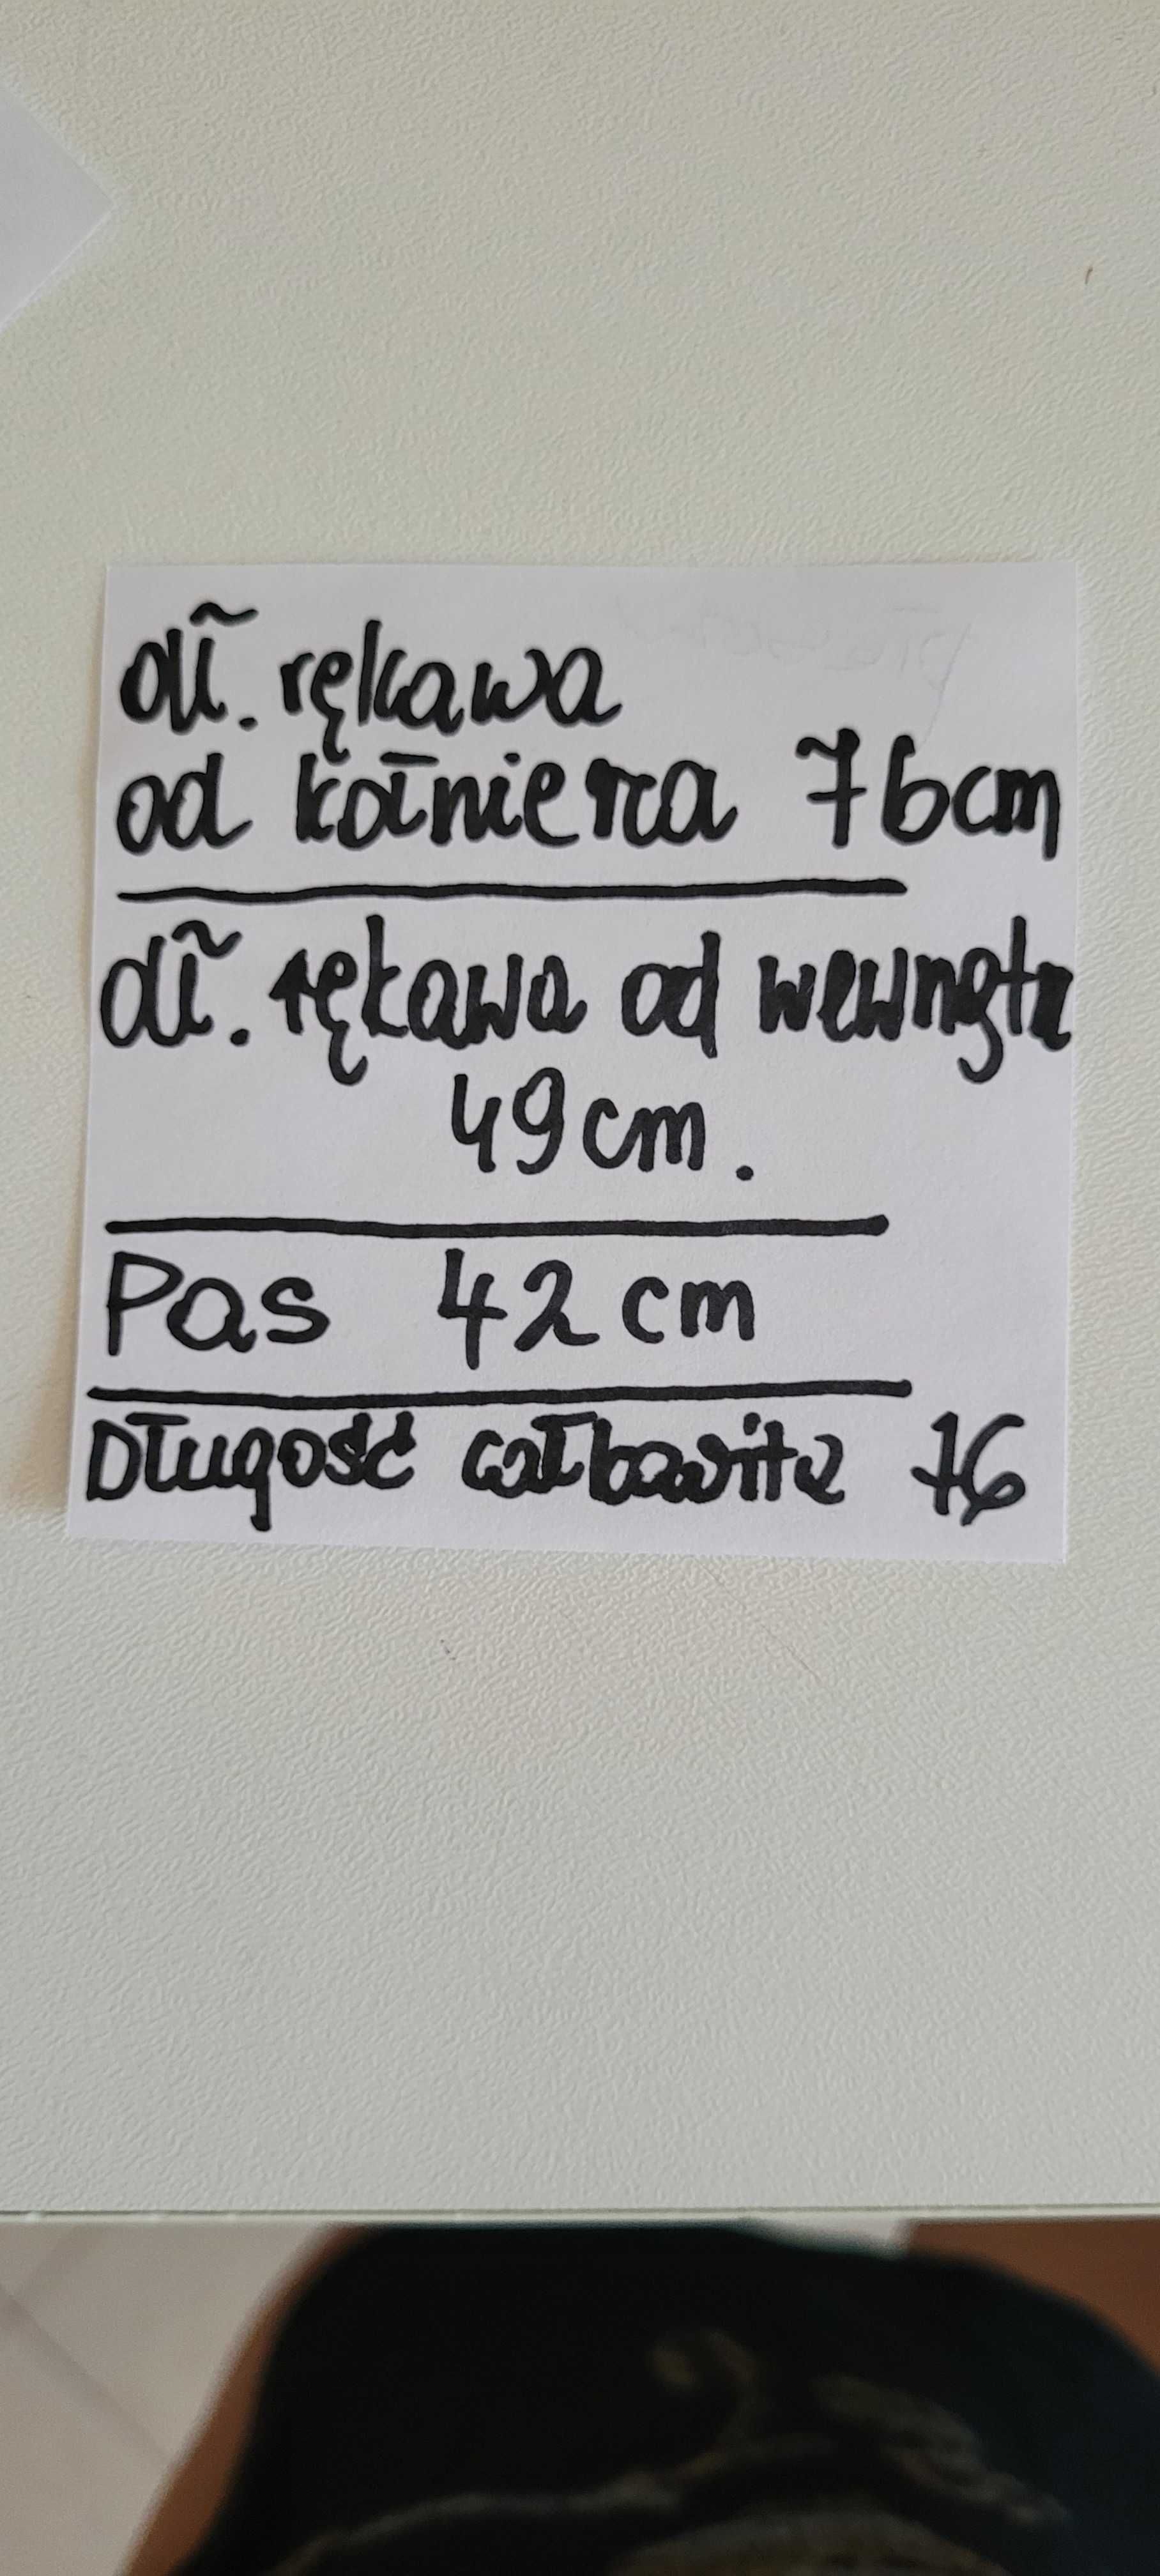 dł. rękawa
od kołnierza 76cm
dł. rękawa od wewngtz
49cm.
Pas 42cm
Długość całkowita 76